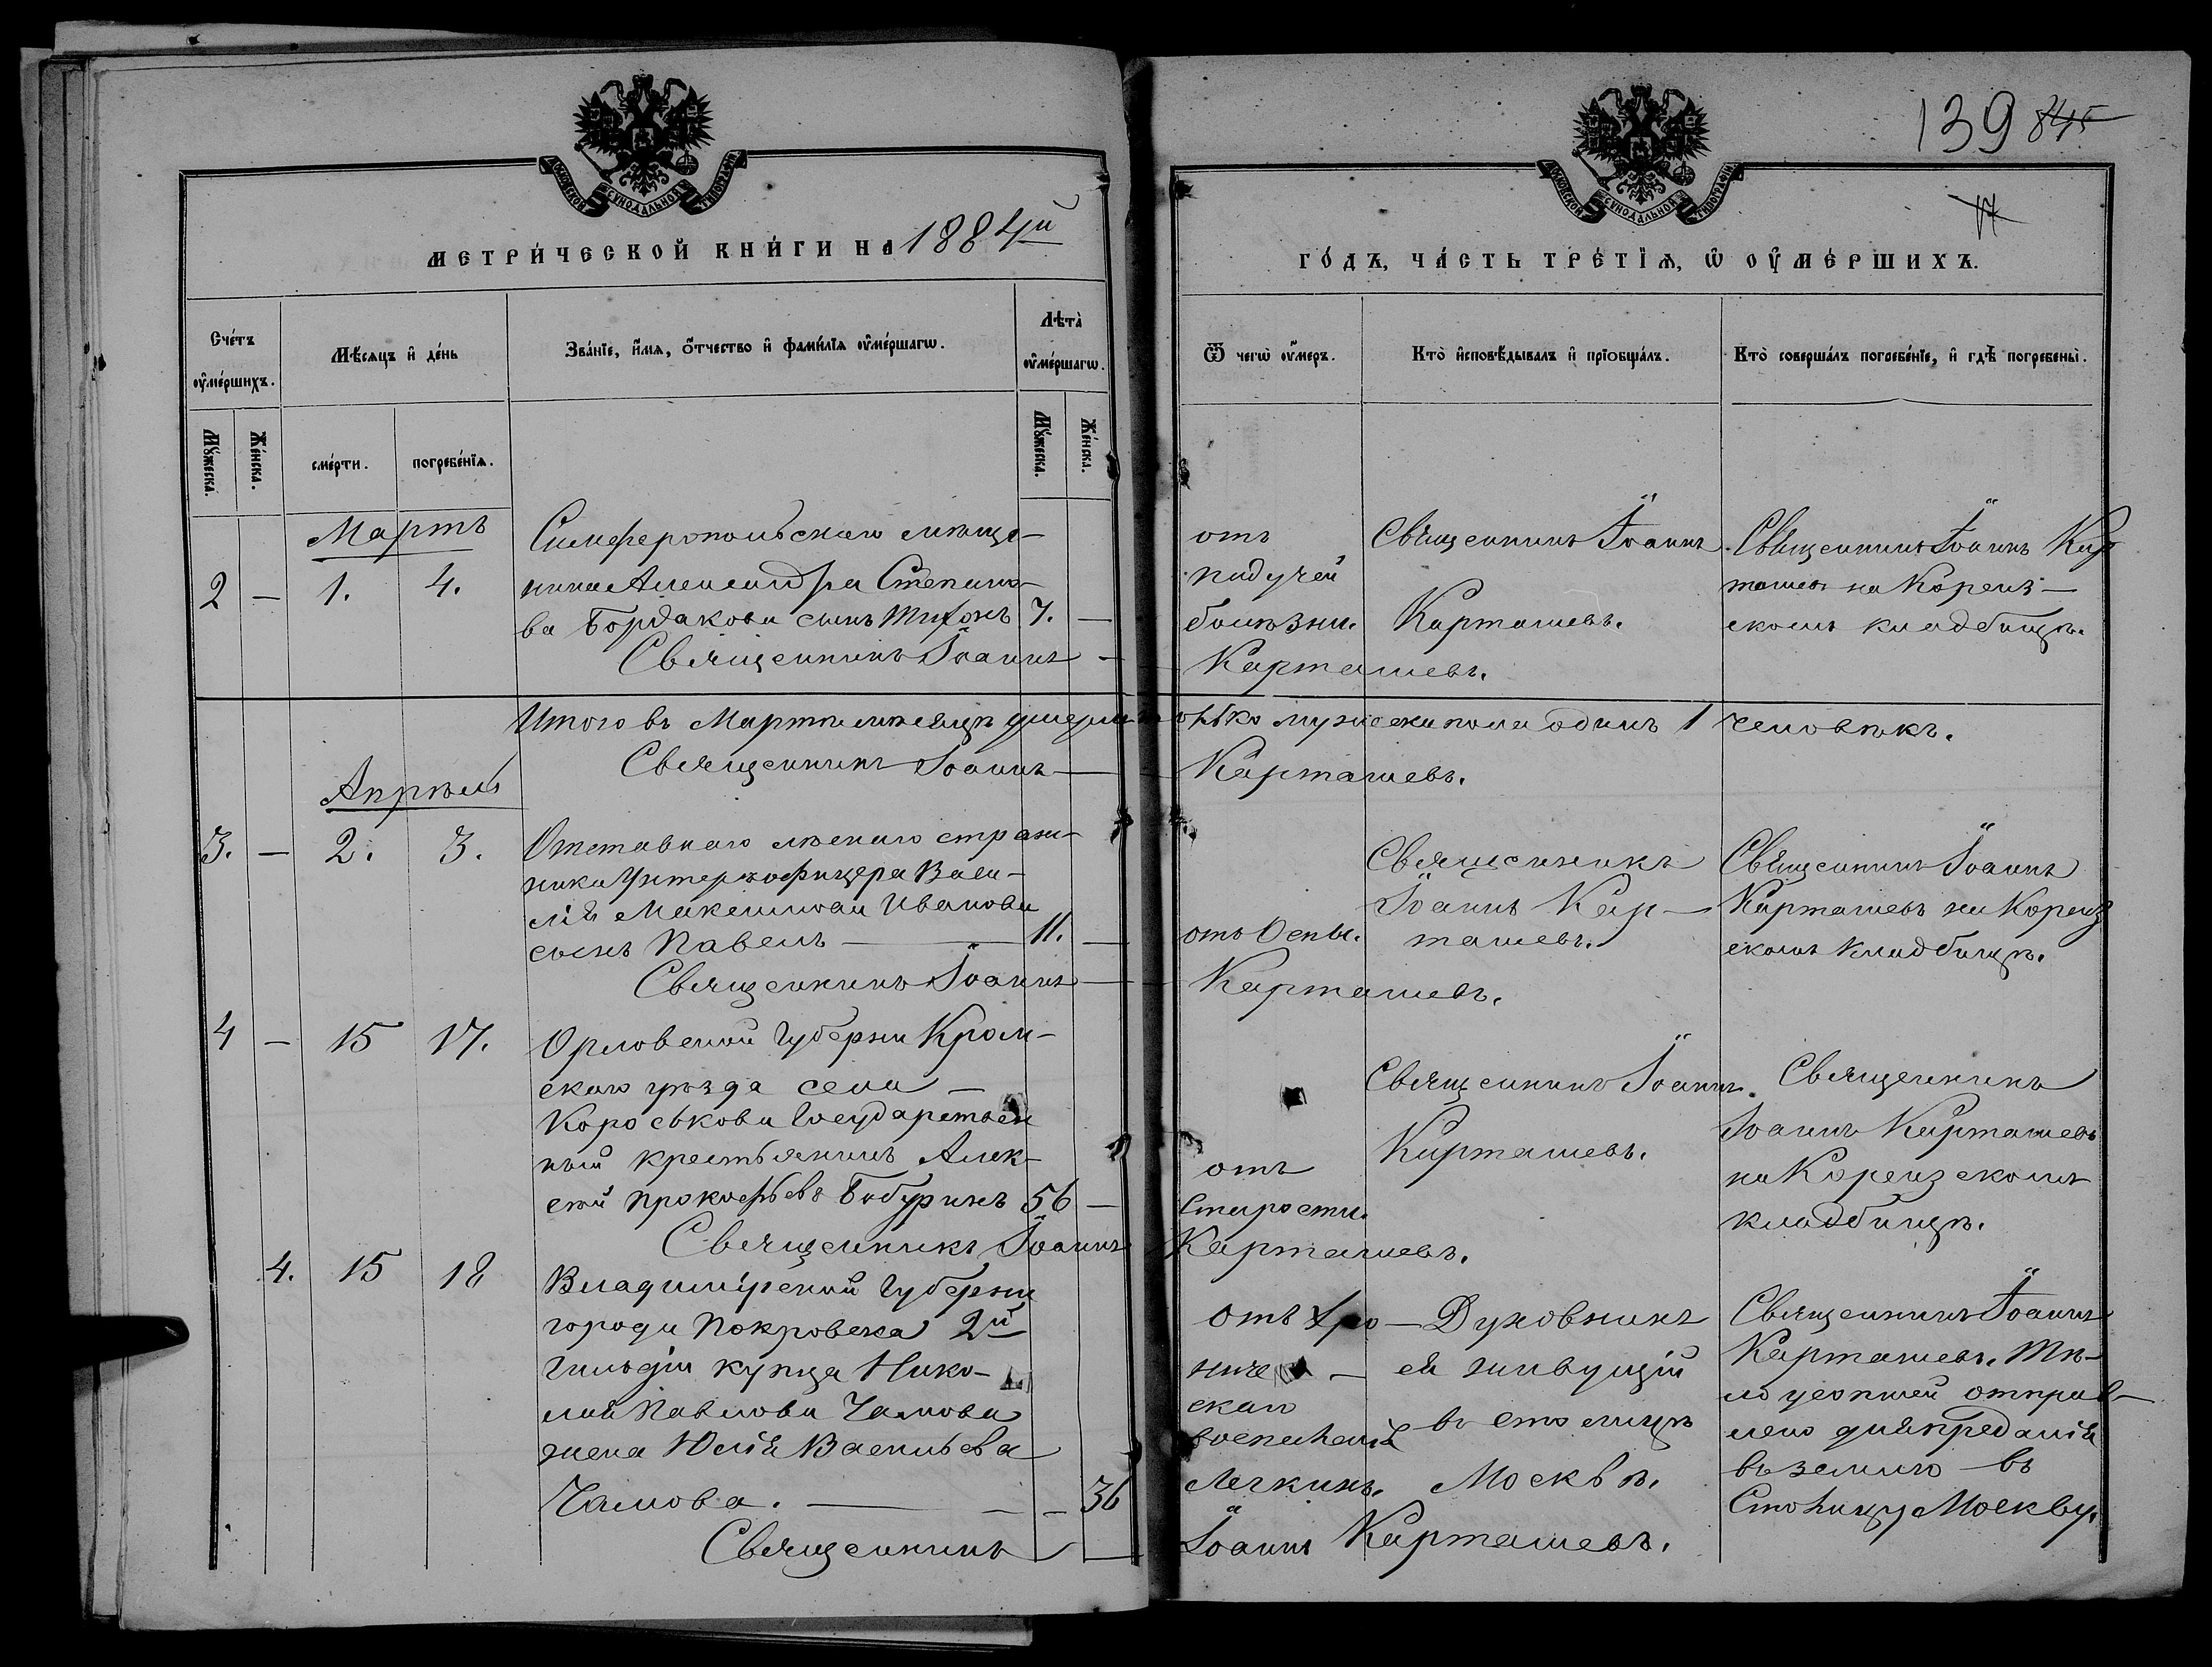 139 845
17
МОСКОВСКОЙ СУНОДАЛЬНОЙ ТИПОГРАФІИ
МОСКОВСКОЙ СУНОДАЛЬНОЙ ТИПОГРАФІИ
МЕТРИ́ЧЕСКОЙ КНИ́ГИ НА 1884й
ГО́ДЪ, ЧА́СТЬ ТРЕ́ТІѦ, Ѡ ОУ҆МЕ́РШИХЪ.
Сче́тъ оу҆ме́ршихъ.
Мѣ́сяцъ и҆ де́нь
Зва́нїе, и҆́мя, ѻ҆́тчество и҆ фами́лїя оу҆ме́ршагѡ.
Лѣта̀ оу҆ме́ршагѡ.
Ѿ чегѡ̀ оу҆́меръ.
Кто̀ и҆сповѣ́дывалъ и҆ прїобща́лъ.
Кто̀ соверша́лъ погребе́нїе, и҆ гдѣ̀ погребены̀.
Му́жеска.
Же́нска.
сме́рти.
погребе́нїя.
Му́жеска.
Же́нска.
Мартъ
2 — 1. 4.
Симферопольскаго мѣща-
нина Александра Степано-
ва Бордакова сынъ Тихонъ 7. —
отъ
падучей
болѣзни.
Священникъ Іоаннъ
Карташевъ.
Священникъ Іоаннъ Кар
ташев на Кореиз—
скомъ кладбищѣ.
Священникъ Іоаннъ — Карташевъ.
Итого въ Мартѣ мѣсяцѣ умерло только мужеска пола одинъ 1 человѣкъ.
Священникъ Іоаннъ — Карташевъ.
Апрѣль
3. — 2. 3.
Отставнаго лѣснаго страж-
ника Унтеръ офицера Васи-
лія Иванова
сынъ Павелъ — 11. —
отъ Оспы.
Священникъ
Іоаннъ Кар—
ташевъ.
Священникъ Іоаннъ
Карташевъ на Кореиз
скомъ кладбищѣ.
Священникъ Іоаннъ — Карташевъ.
4 — 15 17.
Орловской Губерніи Кром-
скаго уѣзда села —
Короськова Государствен
ный крестьянинъ Алек-
сѣй Прокофьевъ Бабуринъ 56 —
отъ
Старости.
Священникъ Іоаннъ.
Карташевъ.
Священникъ
Іоаннъ Карташевъ
на Кореизскомъ
кладбищѣ.
Священникъ Іоаннъ Карташевъ.
4. 15 18
Владимірской Губерніи
города Покровска 2й
Гильдіи купца Нико-
лая Павлова Чамова
жена Юлія Васильева
Чамова. — — 36
отъ Хро—
ниче —
скаго
воспаленія
Легкихъ.
Духовникъ
ея живущій
въ столицѣ
Москвѣ.
Священникъ Іоаннъ
Карташевъ. Тѣ-
ло усопшей отправ—
лено для преданія
въ землю въ
Столицу Москву.
Священникъ Іоаннъ Карташевъ.